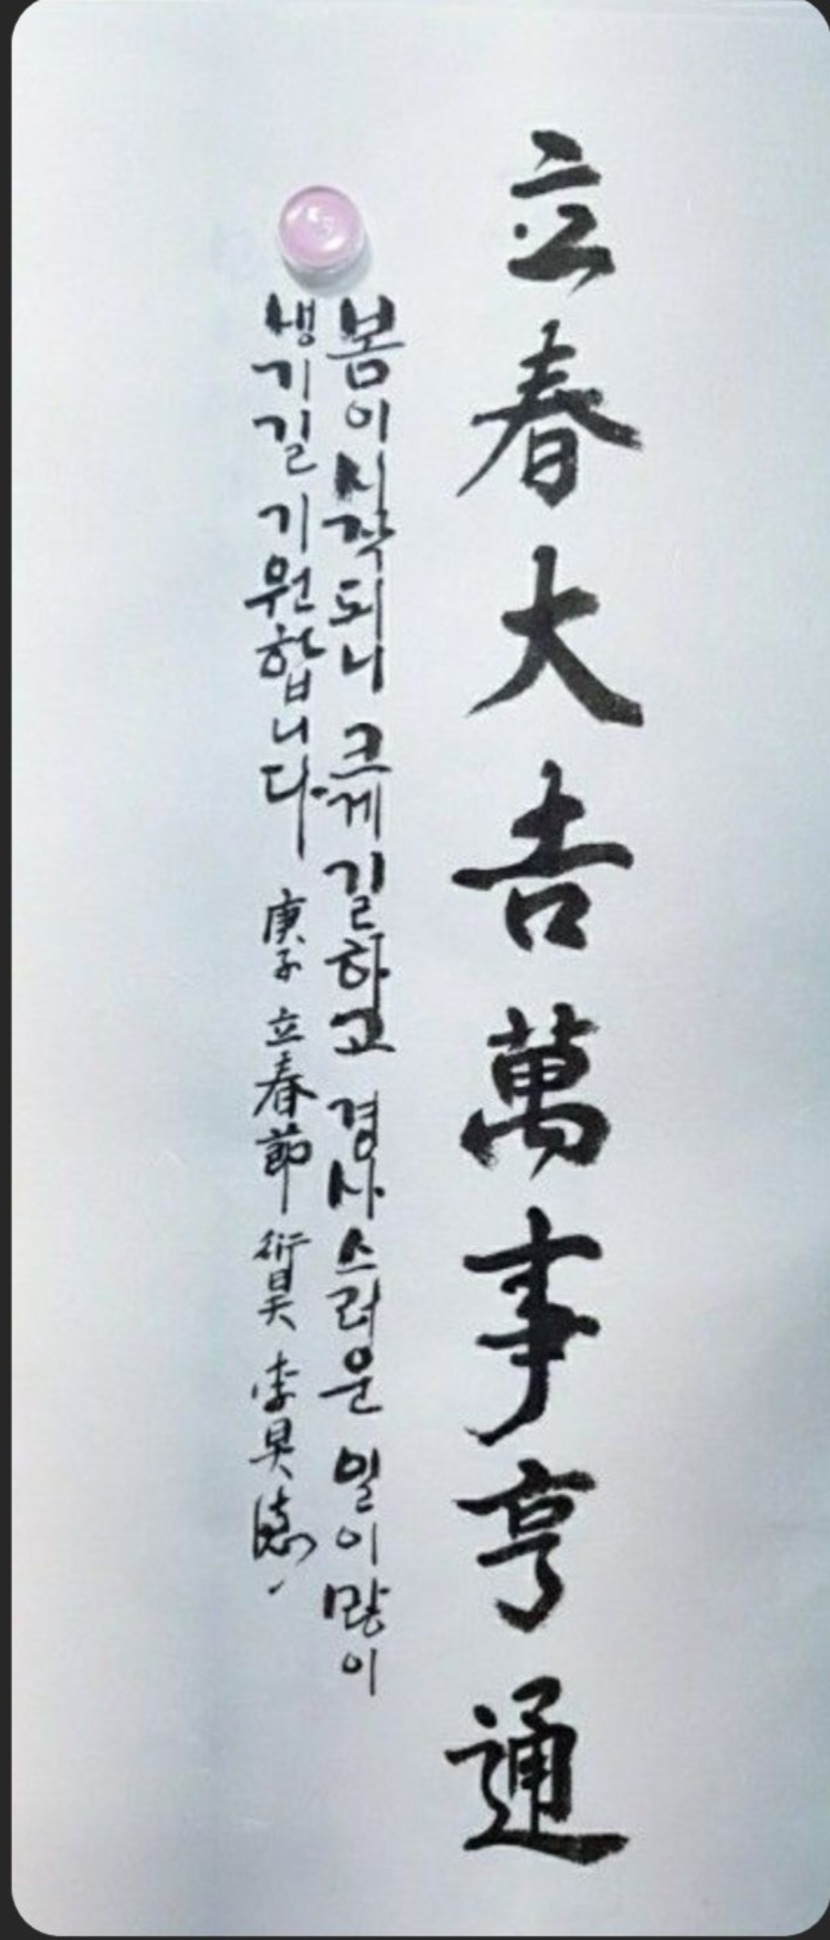 立春大吉萬事亨通
봄이 시작되니 크게 길하고 경사스러운 일이 많이
생기길 기원합니다 庚子 立春節 衍昊 李昊德